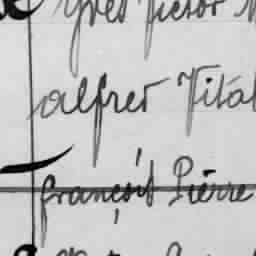 Yves Victor
alfred Vital
françois Pierre